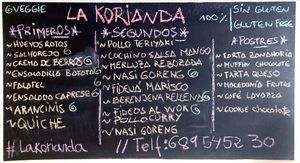 G VEGGIE
LA KORIANDA
100%
SIN GLUTEN
GLUTEN FREE
*PRIMEROS*
~HUEVOS ROTOS
~SALMOREJO G
~CREMA DE BERROS G
~ENSALADILLA
~FALAFEL
~ENSALADA CAPRESE G
~ARANCINIS G
~QUICHE
#LaKorianda
*SEGUNDOS*
~POLLO TERIYAKI
~COCHINO SALSA MANGO
~MERLUZA REBOZADA
~NASI GORENG G
~FIDEUÁ MARISCO
~BERENJENA RELLENA G
~FIDEOS AL WOK G
~POLLO CURRY
~NASI GORENG
*POSTRES*
~TARTA ZANAHORIA
~MUFFIN CHOCOLATE
~TARTA QUESO
~MACEDONIA FRUTAS
~CAFÉ LAVAZZA
~COOKIE CHOCOLATE
// Telf: 629 5452 30